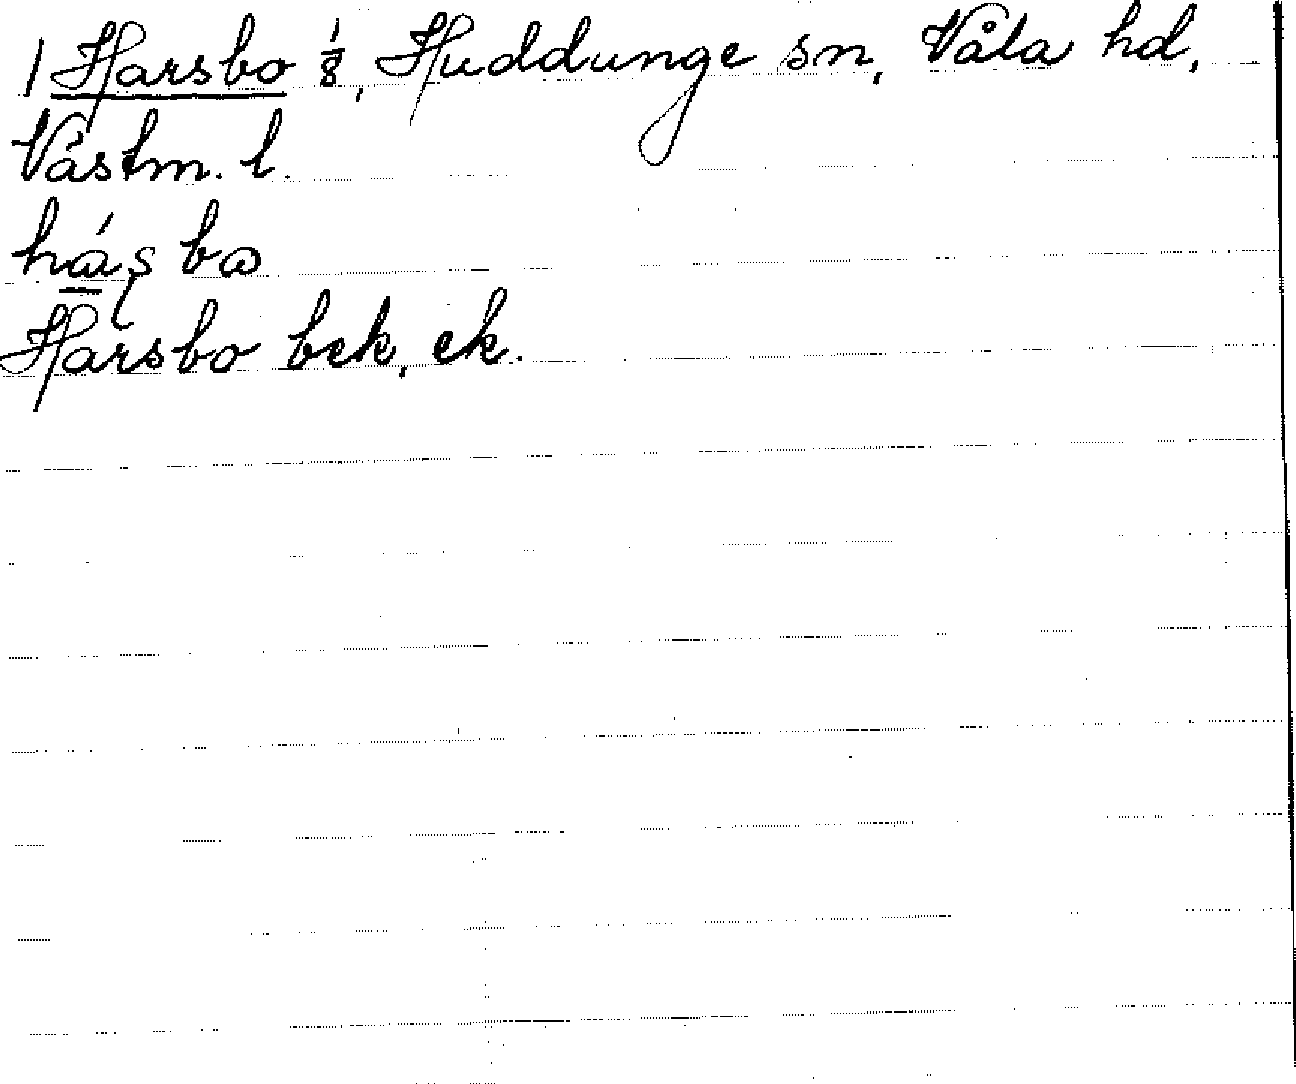 1 Harsbo 1/8, Huddunge sn, Våla hd,
Västm. l.
há̱ʂ bω
Harsbo bek, ek.